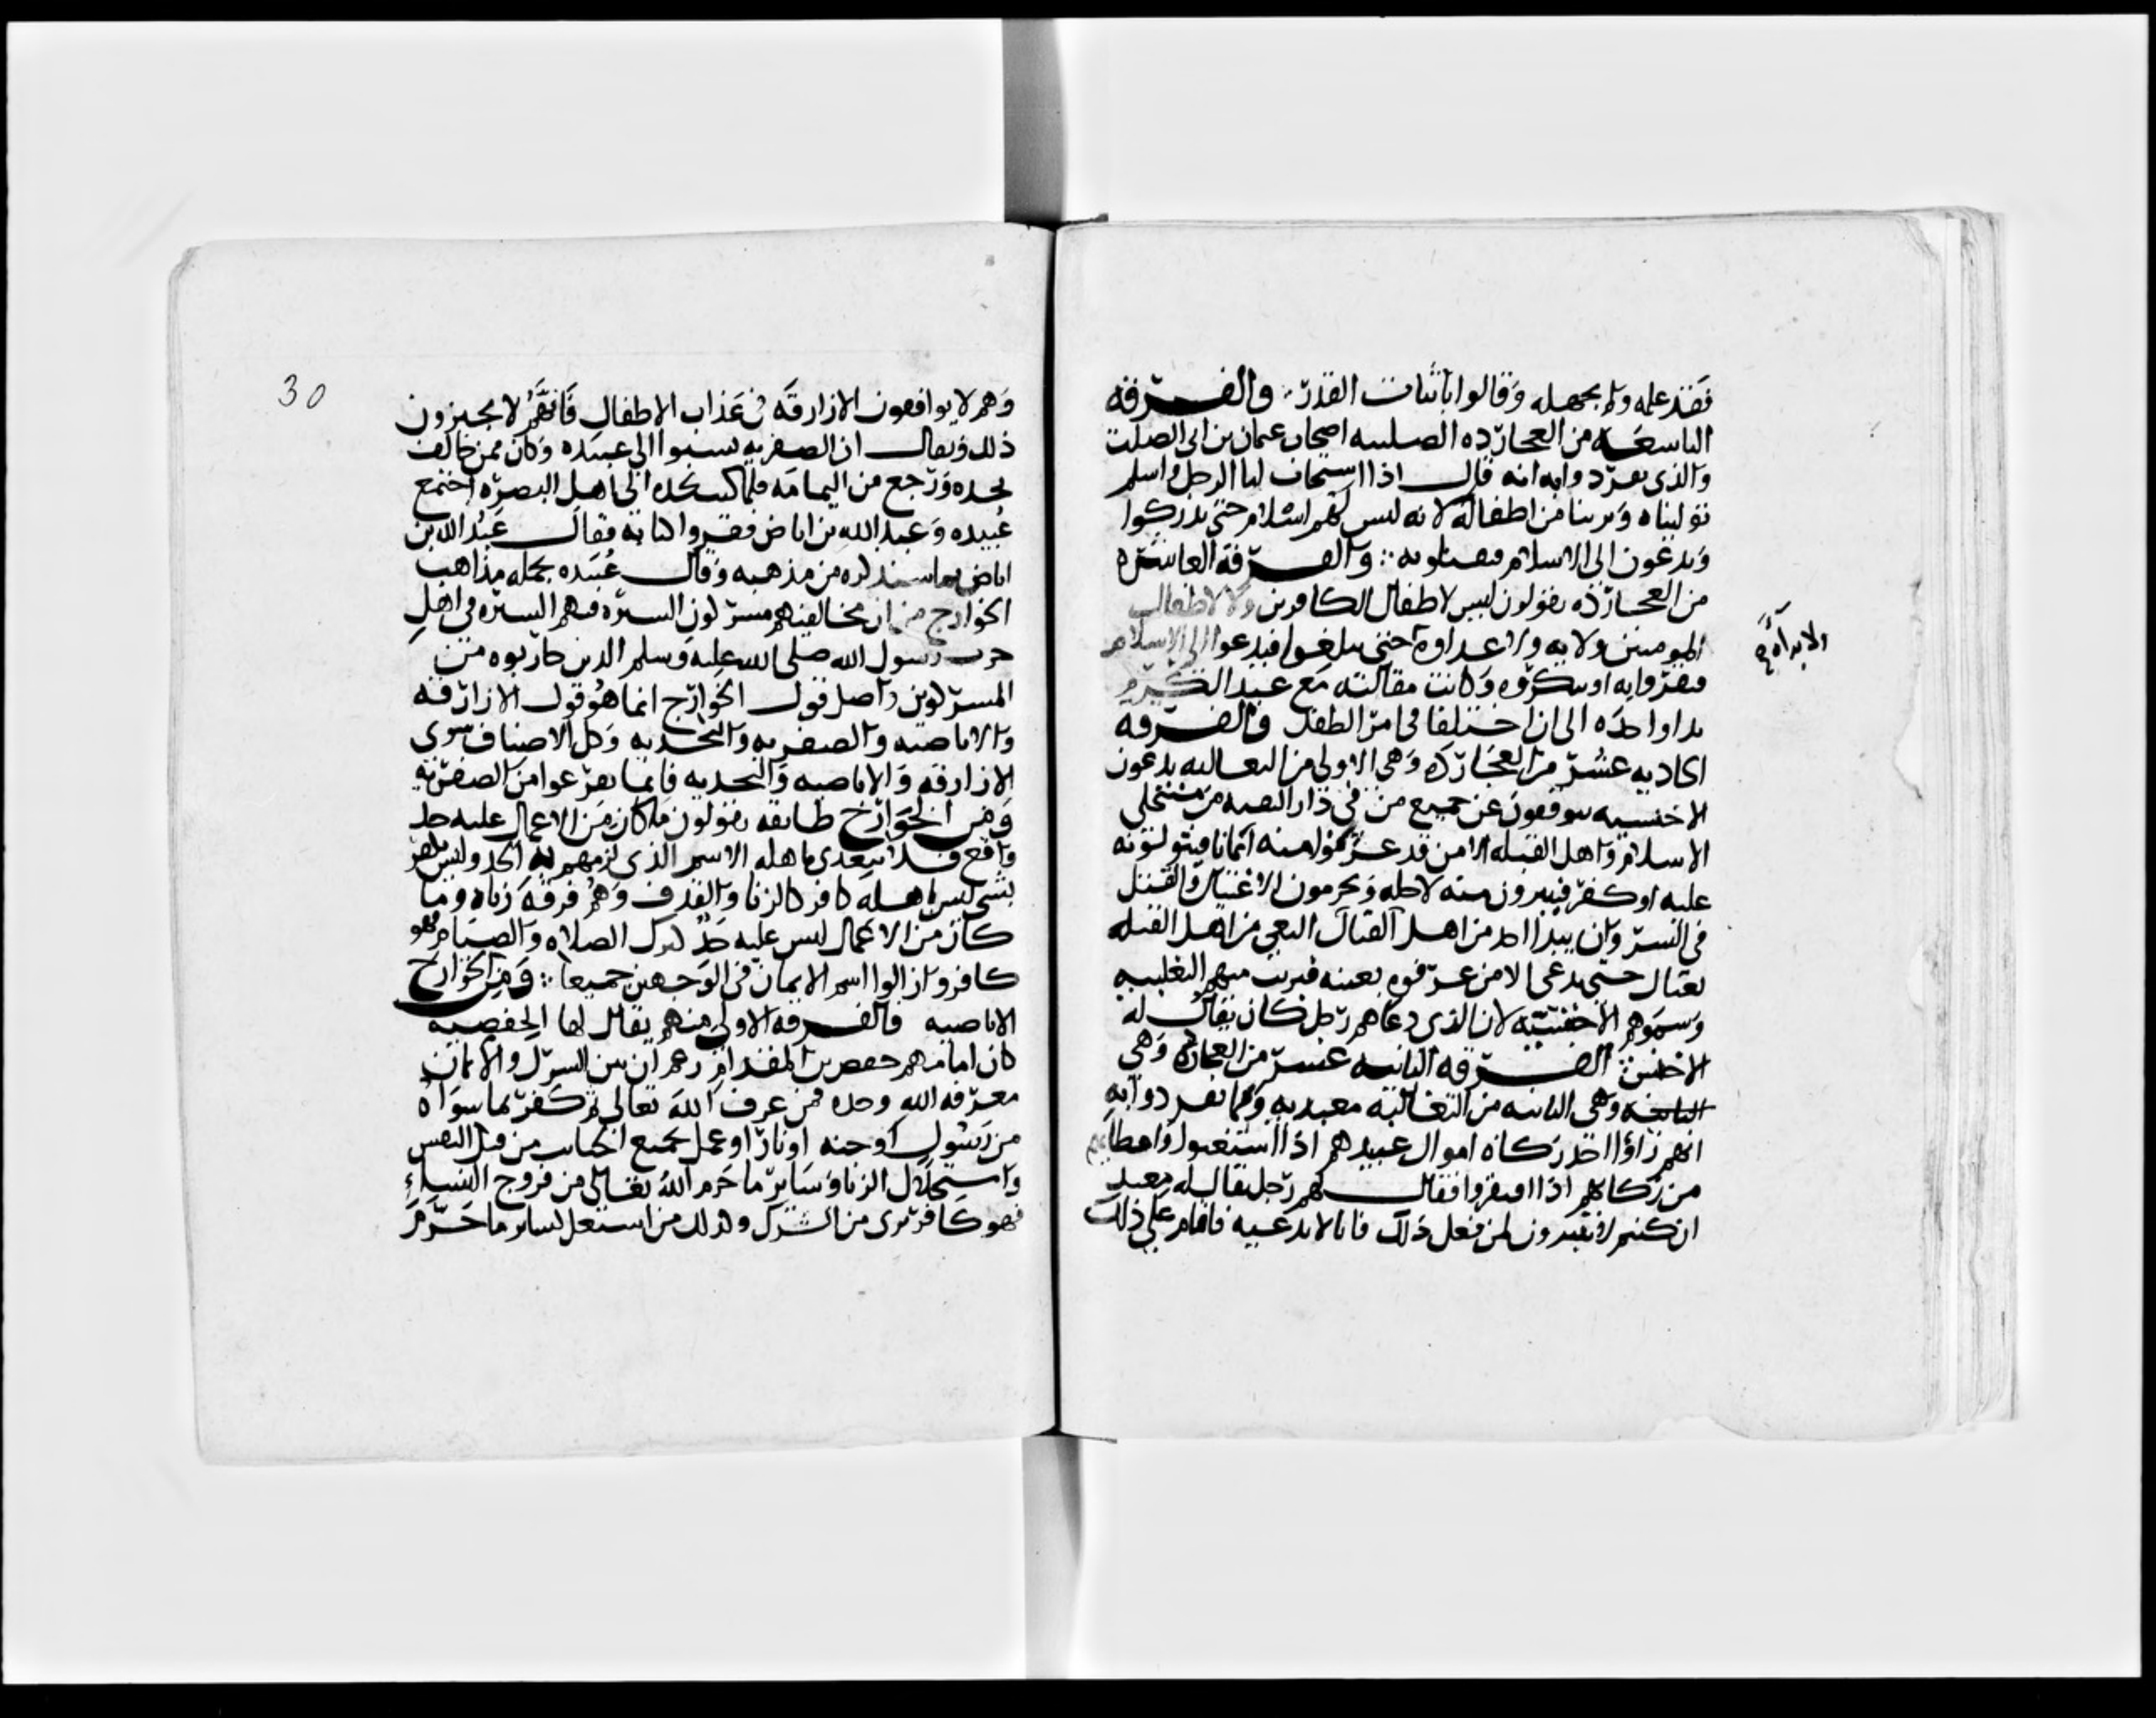 فقد علمه ولم يجهله وقالوا باثبات القدر والفرقه
التاسعه من العجارده الصلتيه اصحاب عثمان بن ابى الصلت
والذى تفرد وا به انه قال اذا استجاب لنا الرجل واسلم
توليناه وبرينا من اطفاله لانه ليس لهم اسلام حتى يدركوا
ويدعون الى الاسلام فيقبلونه والفرقه العاشره
من العجارده يقولون ليس لاطفال الكافرين ولا لاطفال
المومنين ولايه ولا عداوه حتى يبلغوا فيدعوا الى الاسلام
فيقروا به او ينكروه وكانت مقالته مع عبد الكريم
يدا واحده الى ان اختلفا فى امر الطفل والفرقه
الحاديه عشر من العجارده وهى الاولى من الثعالبه يدعون
الاخنسيه يتوقفون عن جميع من فى دار التقيه من منتحلى
الاسلام واهل القبله الا من قد عرفوا منه ايمانا فيتولونه
عليه او كفر فيبرون منه لاجله ويحرمون الاغتيال والقتل
فى السر وان يبدا احد من اهل القتال البغى من اهل القبله
بقتال حتى يدعى الا من عرفوه بعينه فبريت منهم الثعلبيه
وسموهم الاخنسيه لان الذى دعاهم رجل كان يقال له
الاخنس الفرقه الثانيه عشر من العجارده وهى
الثانيه وهى الثانيه من الثعالبه معبديه ومما تفرد وا به
انهم راوا اخذ زكاه اموال عبيدهم اذا استغنوا واعطايهم
من زكاتهم اذا افتقروا فقال لهم رجل يقال له معبد
ان كنتم لا تبرون لمن فعل ذلك فانا لا ندعيه فاقام على ذلك
ولا براءه
30
وهم لا يوافقون الازارقه فى عذاب الاطفال فانهم لا يجيزون
ذلك ويقال ان الصفريه نسبوا الى عبيده وكان ممن خالف
نجده ورجع من اليمامه فلما كتب نجده الى اهل البصره اجتمع
عبيده وعبد الله بن اباض فقروا كتابه فقال عبد الله بن
اباض بما سنذكره من مذهبه وقال عبيده بجمله مذاهب
الخوارج من ان مخالفيهم مشركون السيره فيهم السيره فى اهل
حرب رسول الله صلى الله عليه وسلم الذين حاربوه من
المشركين واصل قول الخوارج انما هو قول الازارقه
والاباضيه والصفريه والنجديه وكل الاصناف سوى
الازارقه والاباضيه والنجديه فانما تفرعوا من الصفريه
ومن الخوارج طايفه يقولون ما كان من الاعمال عليه حد
واقع فلا يتعدى باهله الاسم الذى لزمهم به الحد وليس يكفر
بشى ليس اهله كافر كالزنا والقذف وهم فرقه زناه وما
كان من الاعمال ليس عليه حد كترك الصلاه والصيام فهو
كافر وازالوا اسم الايمان فى الوجهين جميعا ومن الخوارج
الاباضيه فالفرقه الاولى منهم يقال لها الحفصيه
كان امامهم حفص بن المقدام زعم ان بين الشرك والايمان
معرفه الله وحده فمن عرف الله تعالى ثم كفر بما سواه
من رسول او جنه او نار او عمل بجميع الخبايث من قتل النفس
واستحلال الزنا وساير ما حرم الله تعالى من فروج النساء
فهو كافر برى من الشرك وكذلك من اشتغل بساير ما حرم